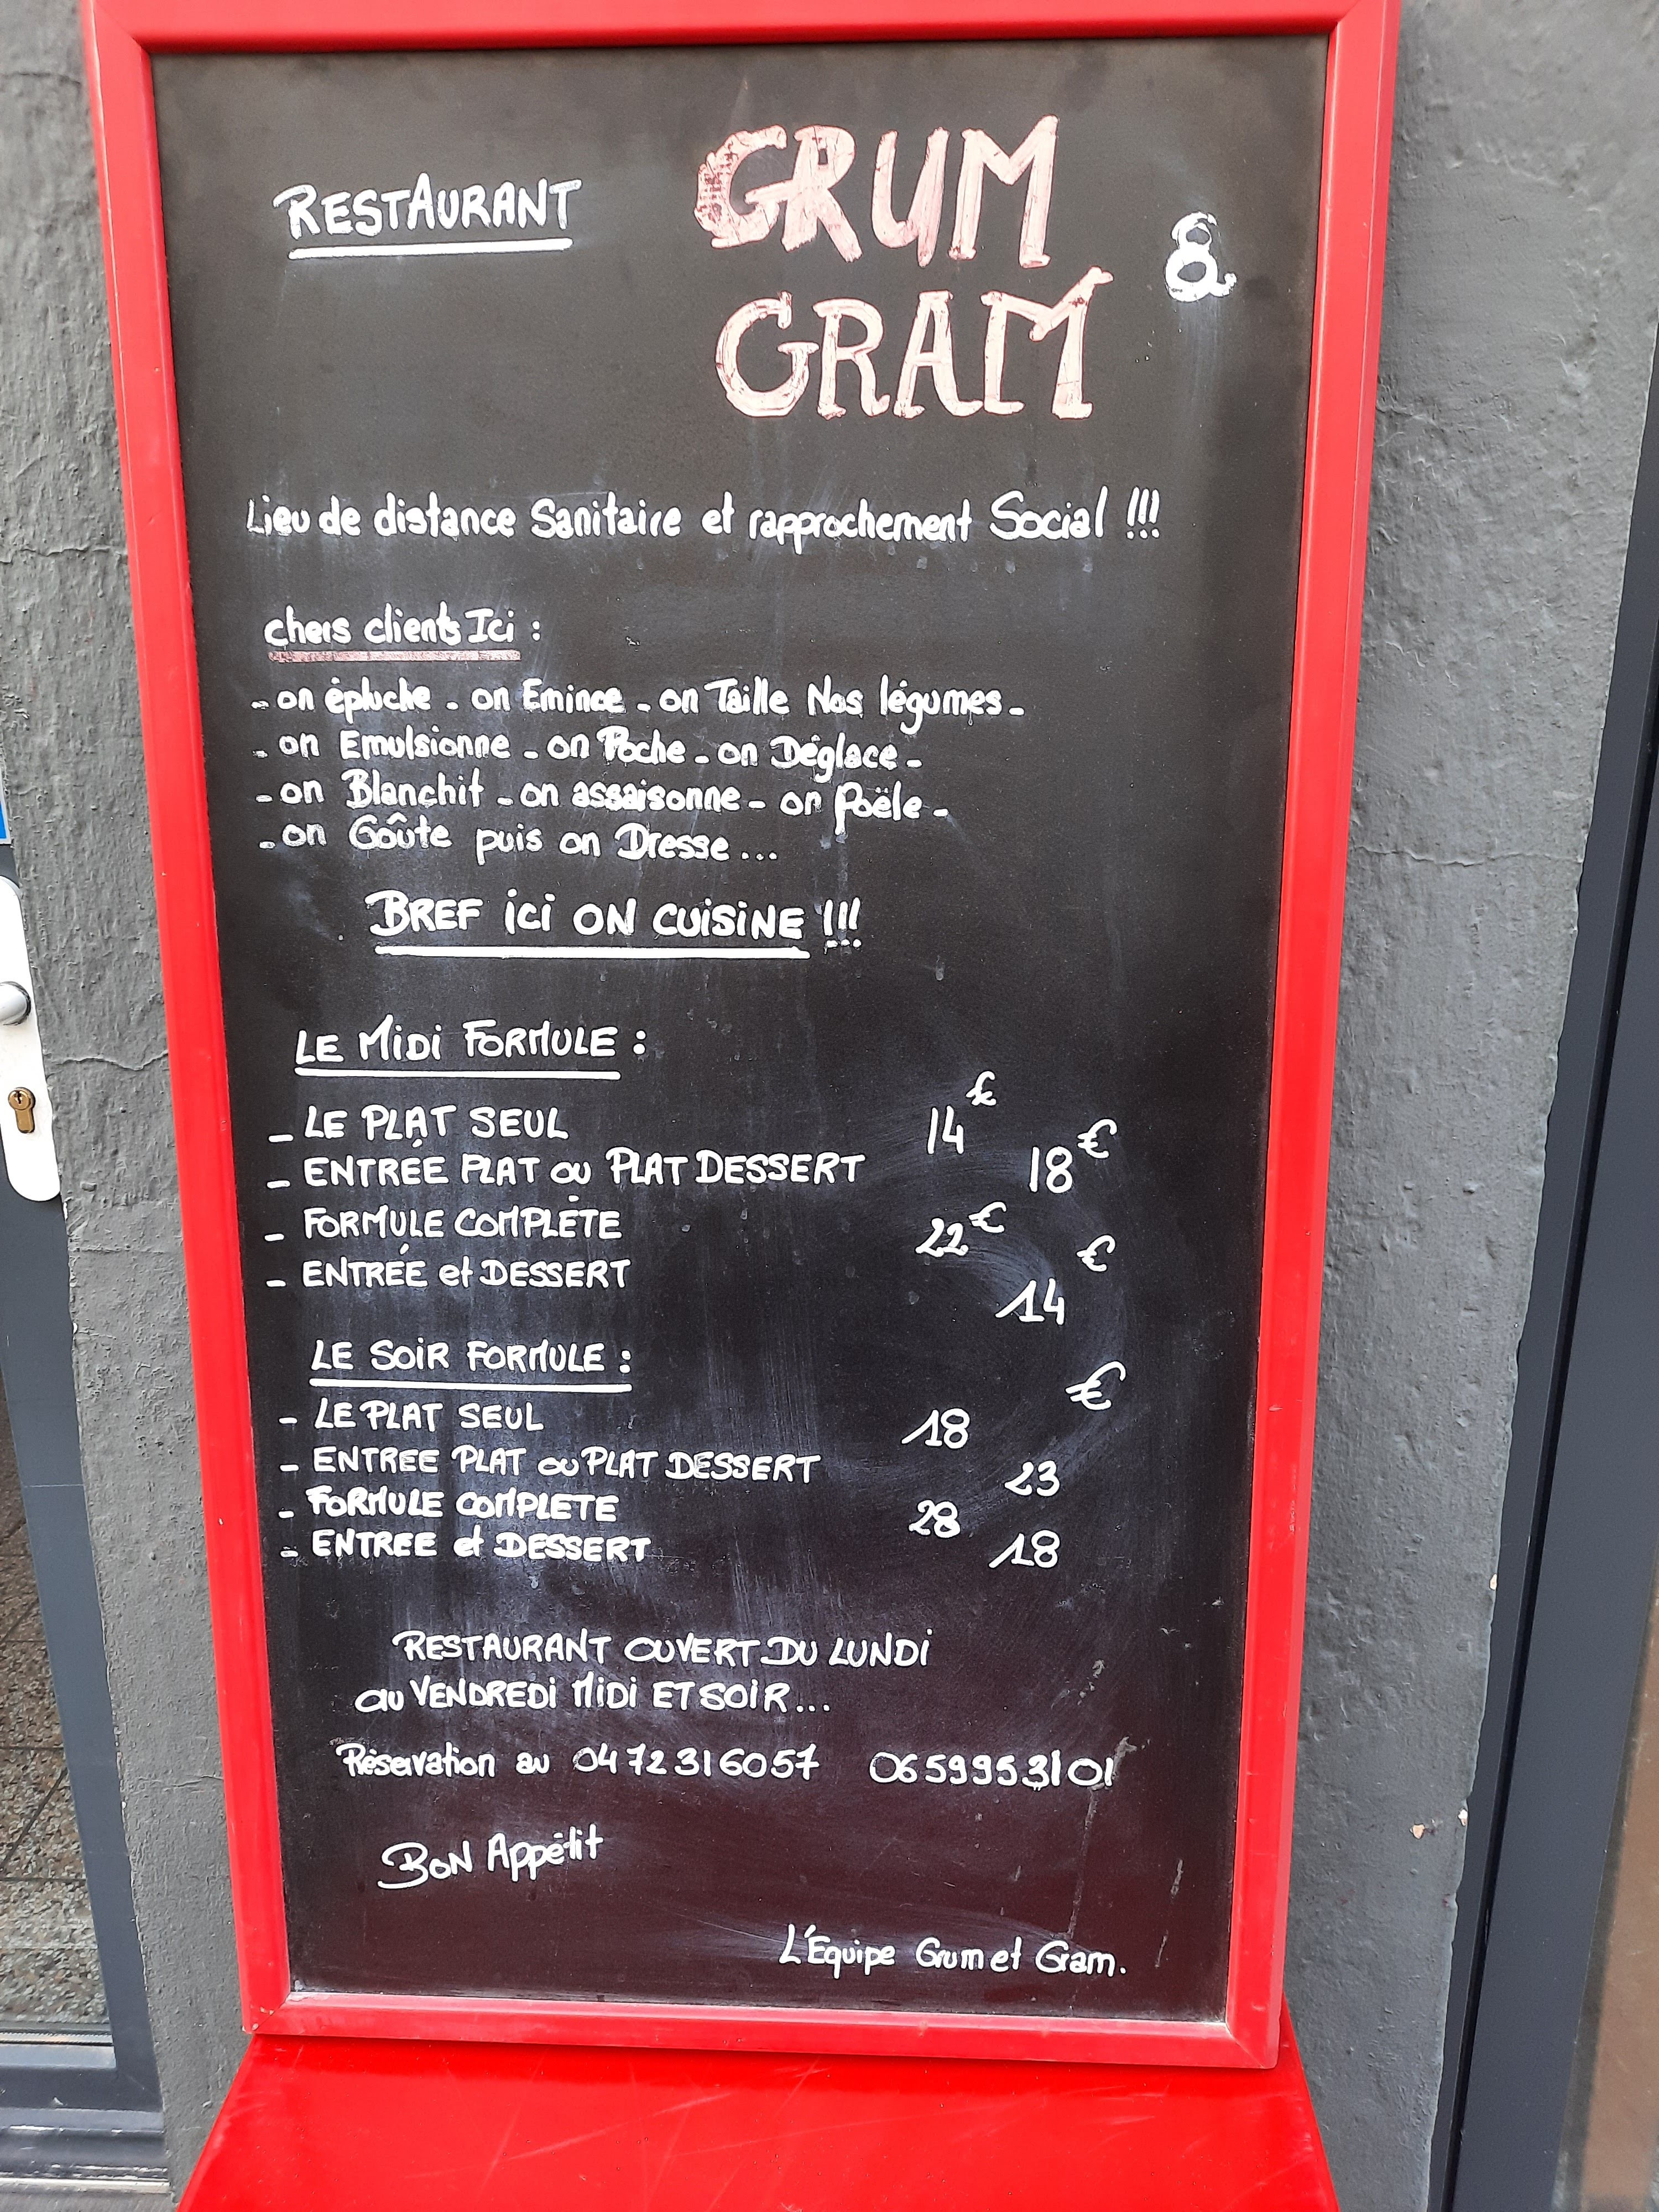 RESTAURANT GRUM &
GRAM
Lieu de distance Sanitaire et rapprochement Social !!!
chers clients Ici :
- on épluche - on Emince - on Taille Nos légumes -
- on Emulsionne - on Poche - on Déglace -
- on Blanchit - on assaisonne - on Poële -
- on Goûte puis on Dresse ...
BREF ici ON CUISINE !!!
LE MIDI FORMULE :
- LE PLAT SEUL 14€
- ENTRÉE PLAT OU PLAT DESSERT 18€
- FORMULE COMPLÈTE 22€
- ENTRÉE et DESSERT 14€
LE SOIR FORMULE : €
- LE PLAT SEUL 18
- ENTREE PLAT OU PLAT DESSERT 23
- FORMULE COMPLETE 28
- ENTREE et DESSERT 18
RESTAURANT OUVERT DU LUNDI
au VENDREDI MIDI ET SOIR...
Réservation au 04 72 31 60 57 06 59 95 31 01
BON Appétit
L'Equipe Grum et Gram.